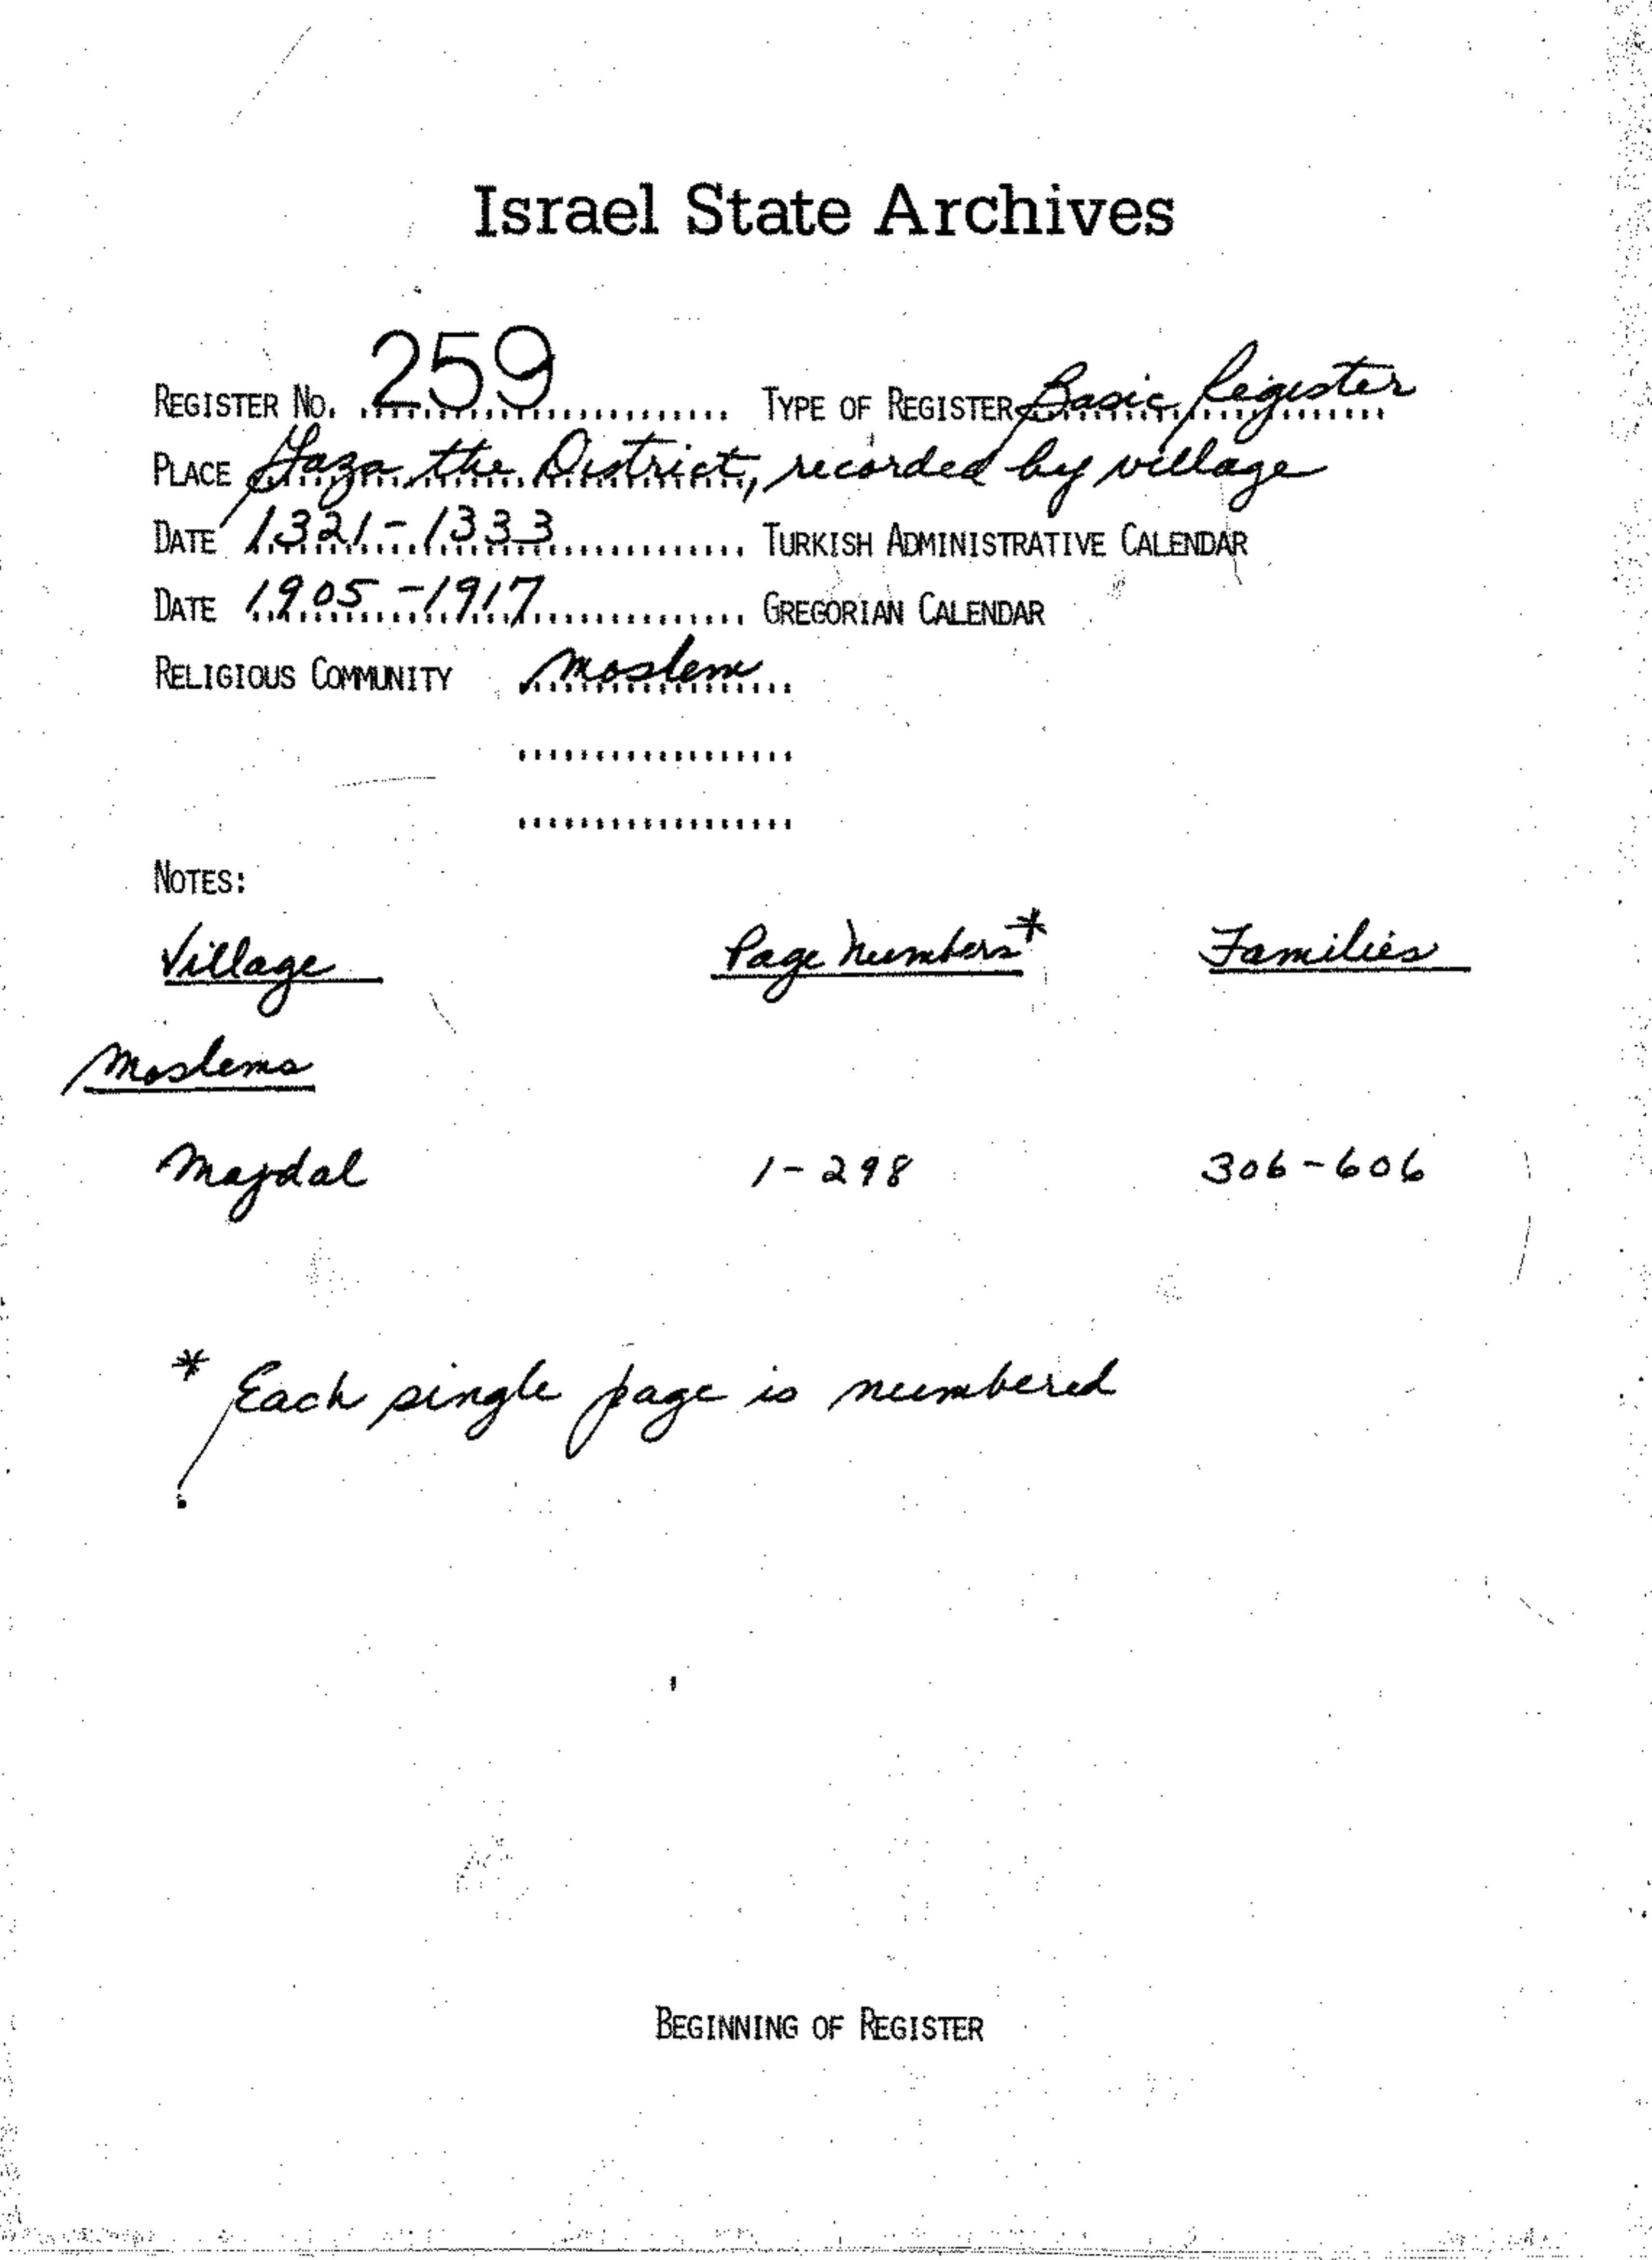 Israel State Archives
REGISTER No. 259 TYPE OF REGISTER Basic Register
PLACE Gaza the District, recorded by village
DATE 1321-1333 TURKISH ADMINISTRATIVE CALENDAR
DATE 1905-1917 GREGORIAN CALENDAR
RELIGIOUS COMMUNITY Moslem
NOTES:
Village Page Numbers* Families
Moslems
Majdal 1-298 306-606
* Each single page is numbered
BEGINNING OF REGISTER